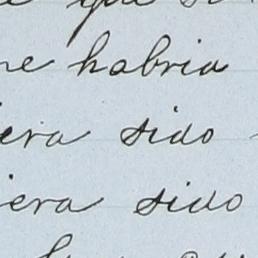 que si
me habria
iera sido
iera sido